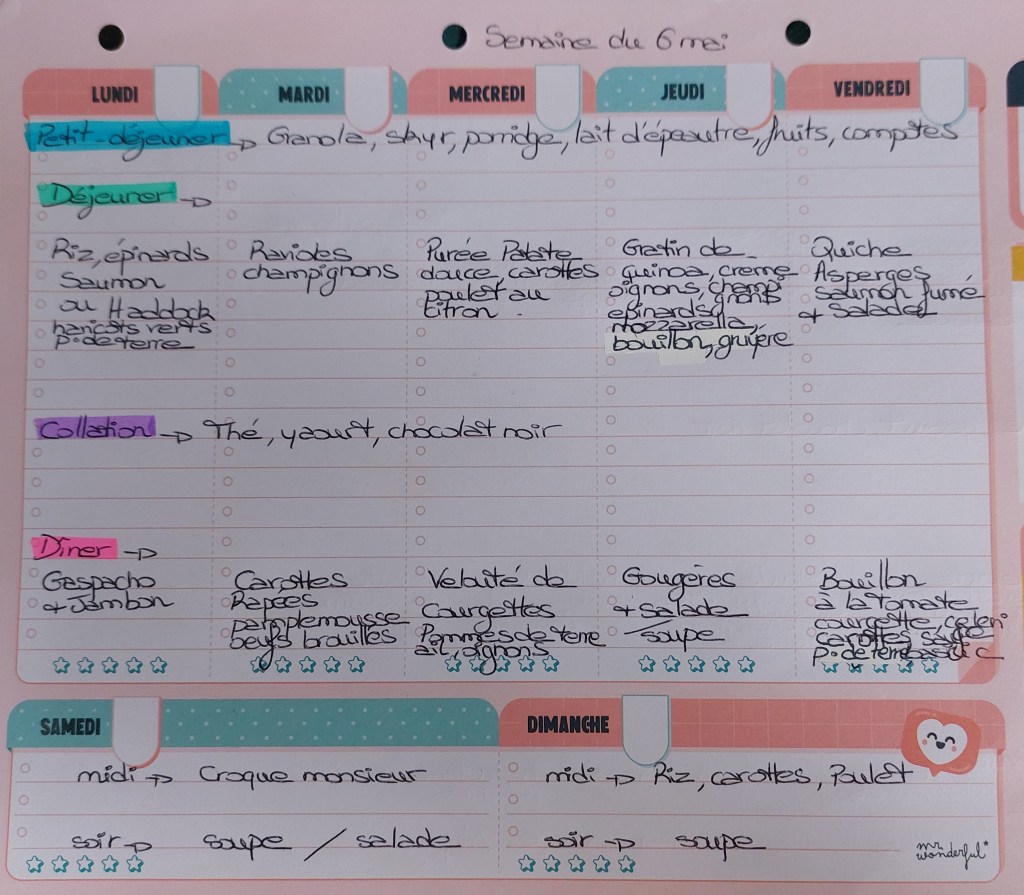 Semaine du 6 mai
LUNDI MARDI MERCREDI JEUDI VENDREDI
Petit-déjeuner → Granola, skyr, porridge, lait d'épeautre, fruits, compotes
Déjeuner →
Riz, épinards
Saumon
ou Haddock
haricots verts
p. de terre
Ravioles
champignons
Purée Patate
douce, carottes
poulet au
citron.
Gratin de
quinoa, creme
oignons, champi
gnons
epinards
mozzarella,
bouillon, gruyère
Quiche
Asperges
saumon fumé
+ Salade
Collation → Thé, yaourt, chocolat noir
Dîner →
Gaspacho
+ Jambon
Carottes
Rapees
pamplemousse
oeufs brouilles
Velouté de
Courgettes
Pommes de terre
ail, oignons
Gougères
+ Salade
/soupe
Bouillon
à la tomate
courgette, celeri
carottes
p. de terre
SAMEDI
midi → Croque monsieur
soir → soupe / salade
DIMANCHE
midi → Riz, carottes, Poulet
soir → soupe
mr wonderful*